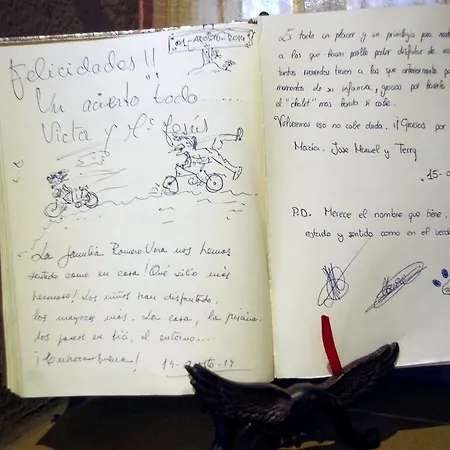 01-AGOSTO-2014
Felicidades!!
Un acierto todo.....
Victa y Mª Jesús
La familia Romero-Vera nos hemos
sentido como en casa! Qué sitio más
hermoso! Los niños han disfrutado,
los mayores más. La casa, la piscina
los paseos en bici, el entorno...
¡Enhorabuena!
14-agosto-14
Es todo un placer y un privilegio para
a los que hacen posible poder disfrutar de
tantos momentos
momentos de su infancia, gracias por
el "chalet" mas bonito si cabe.
Volveremos eso no cabe duda. ¡¡Gracias por
María, Jose Manuel y Terry
15-
P.D. Merece el nombre que tiene,
estado y sentido como en el